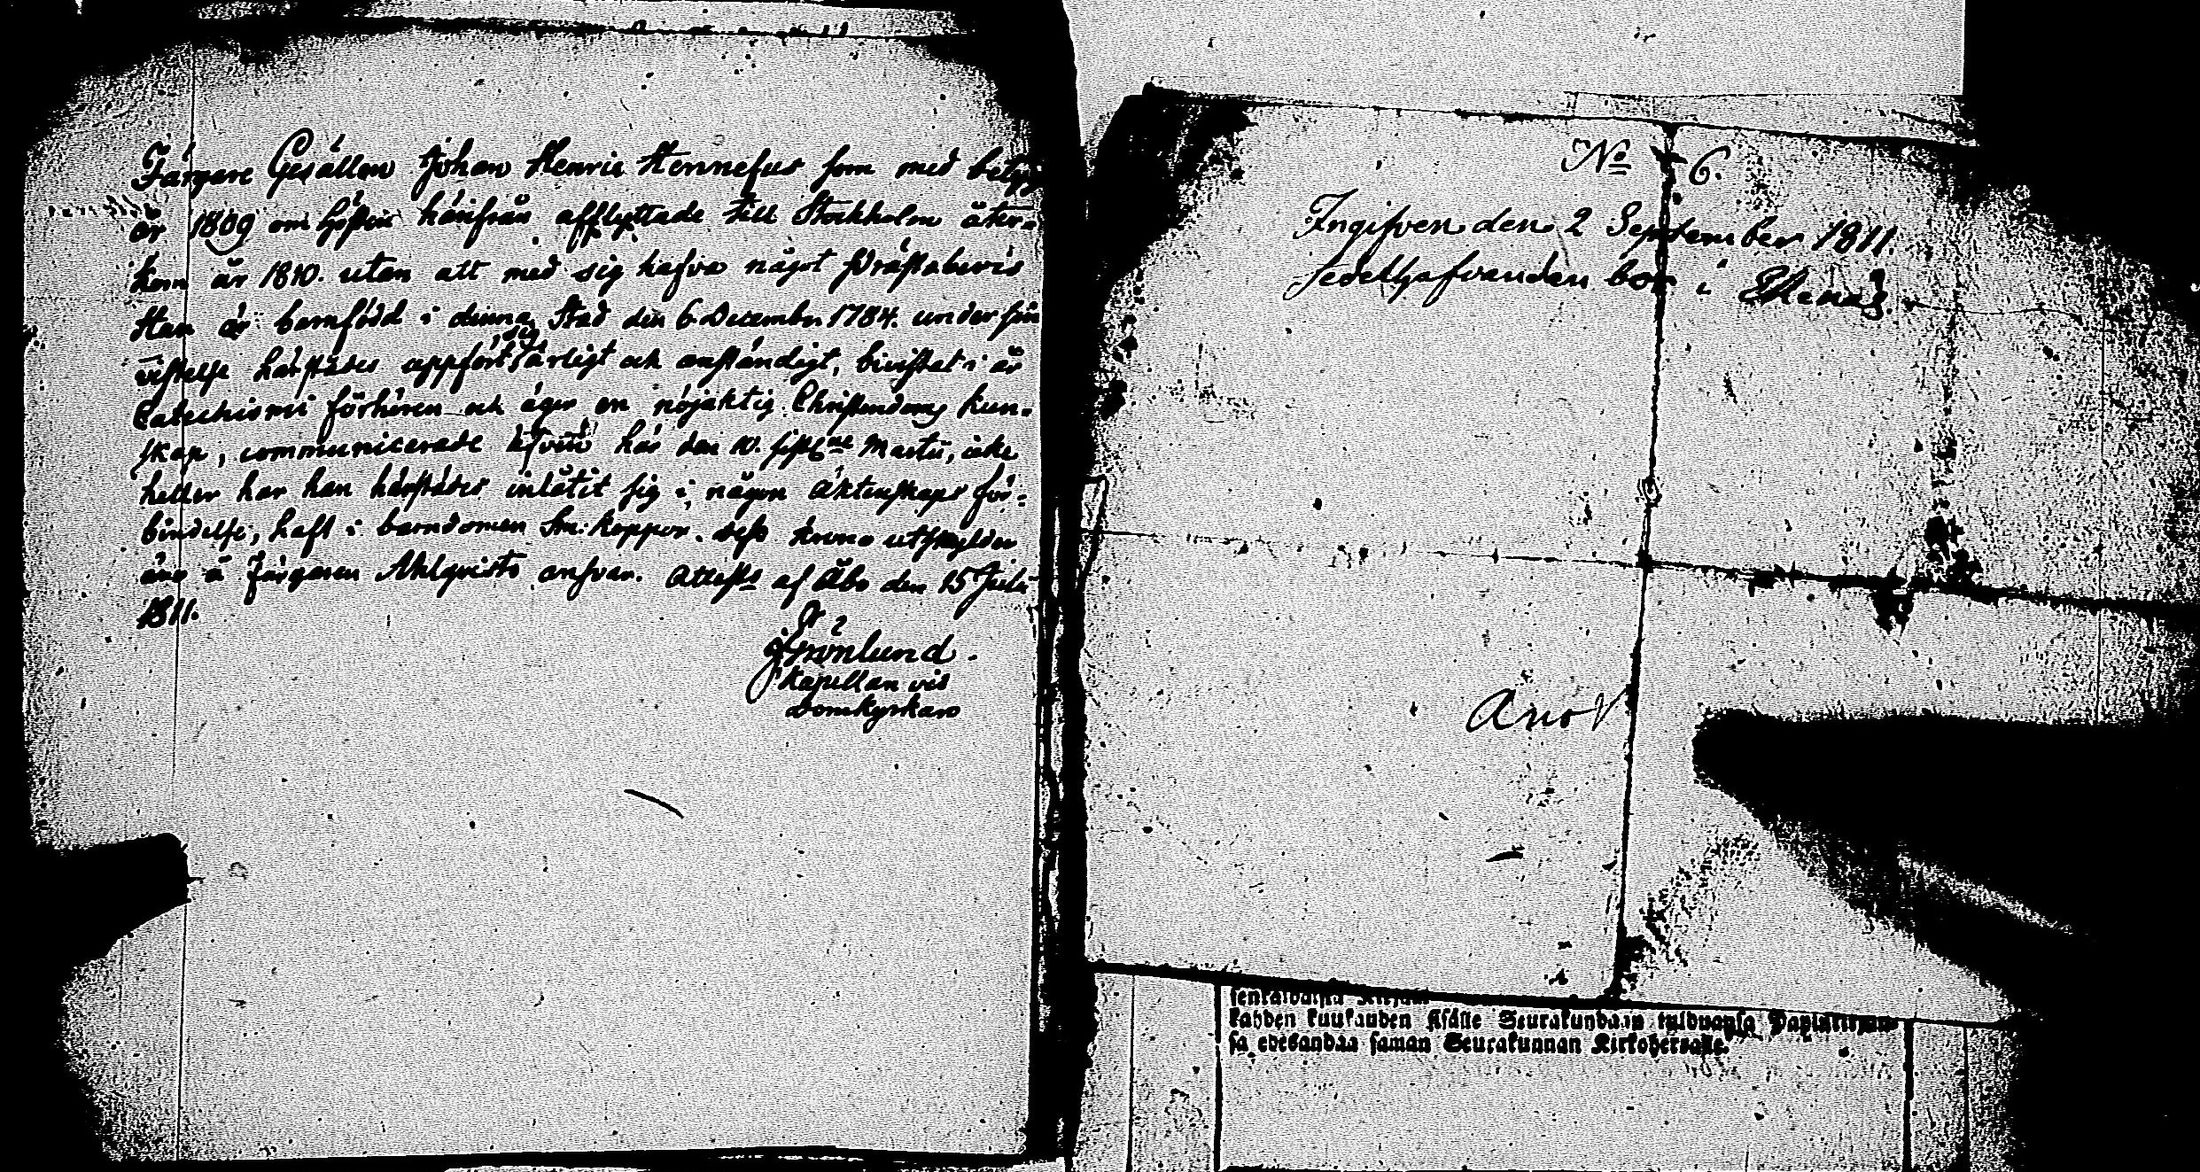 Färgare Gesällen Johan Henric Hennefus som med betyg
år 1809 om hösten härifrån afflyttade till Stockholm åter-
kom år 1810. utan att med sig hafva något Prästabevis
Han är barnfödd i denna Stad den 6 December 1784. under sin
vistelse härstädes uppfört sig ärligt och anständigt, bivistat i år
Catechismi förhören och äger en nöjaktig Christendoms kun-
skap, communicerade här den 10. sistl:ne Martii, icke
heller har han härstädes inlåtit sig i någon äktenskaps för-
bindelse, haft i barndomen Sm: koppor. dess Krono utskylder
äro å Färgaren Ahlqvists ansvar. Attest:s af Åbo den 15 Julii
1811.
Grönlund.
Kapellan vid
Domkyrkan
No 6.
Ingifven den 2 September 1811.
sedelhafvanden bor i Ekenäs.
kahden kuukauden sisälle Seurakundaan tulduansa
sa edesandaa saman Seurakunnan Kirkoherralle.